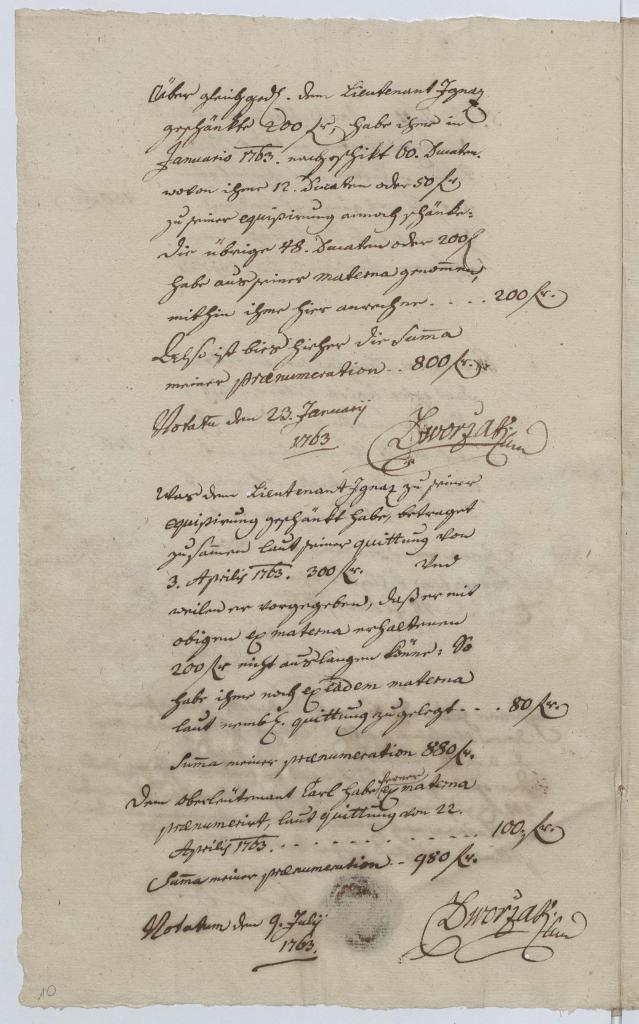 Über gleich gedh. dem Lieutenant Ignaz
geschänkte 200 fr, habe ihme in
Januario 1763. nachgeschikt 60. Ducaten.
wovon ihme 12. Ducaten oder 50 fr
zu seiner equipirung annoch schänke:
die übrige 48. Ducaten oder 200 f
habe aus seiner materna genommen,
mithin ihme hier anrechne . . . . 200 fr.
Also ist bies hieher die Summa
meiner praenumeration . . 800 fr.
Notatu den 23. Januarij
1763
Was dem Lieutenant Ignaz zu seiner
equipirung geschänkt habe, betraget
zusammen laut seiner quittung von
3. Aprilis 1763. 300 fr. Und
weilen er vorgegeben, daß er mit
obigen ex materna erhaltenen
200 fr nicht auslangen könne: So
habe ihme noch ex eadem materna
laut quittung zugelegt - . . 80 fr.
Summa meiner praenumeration 880 fr.
Dem oberleutenant Carl habe ferner ex materna
praenumerirt, laut quittung von 22.
Aprilis 1763. . . . . . . . . . . . 100 fr.
Summa meiner praenumeration - 980 fr.
Notatum den 9. July
1763.
10